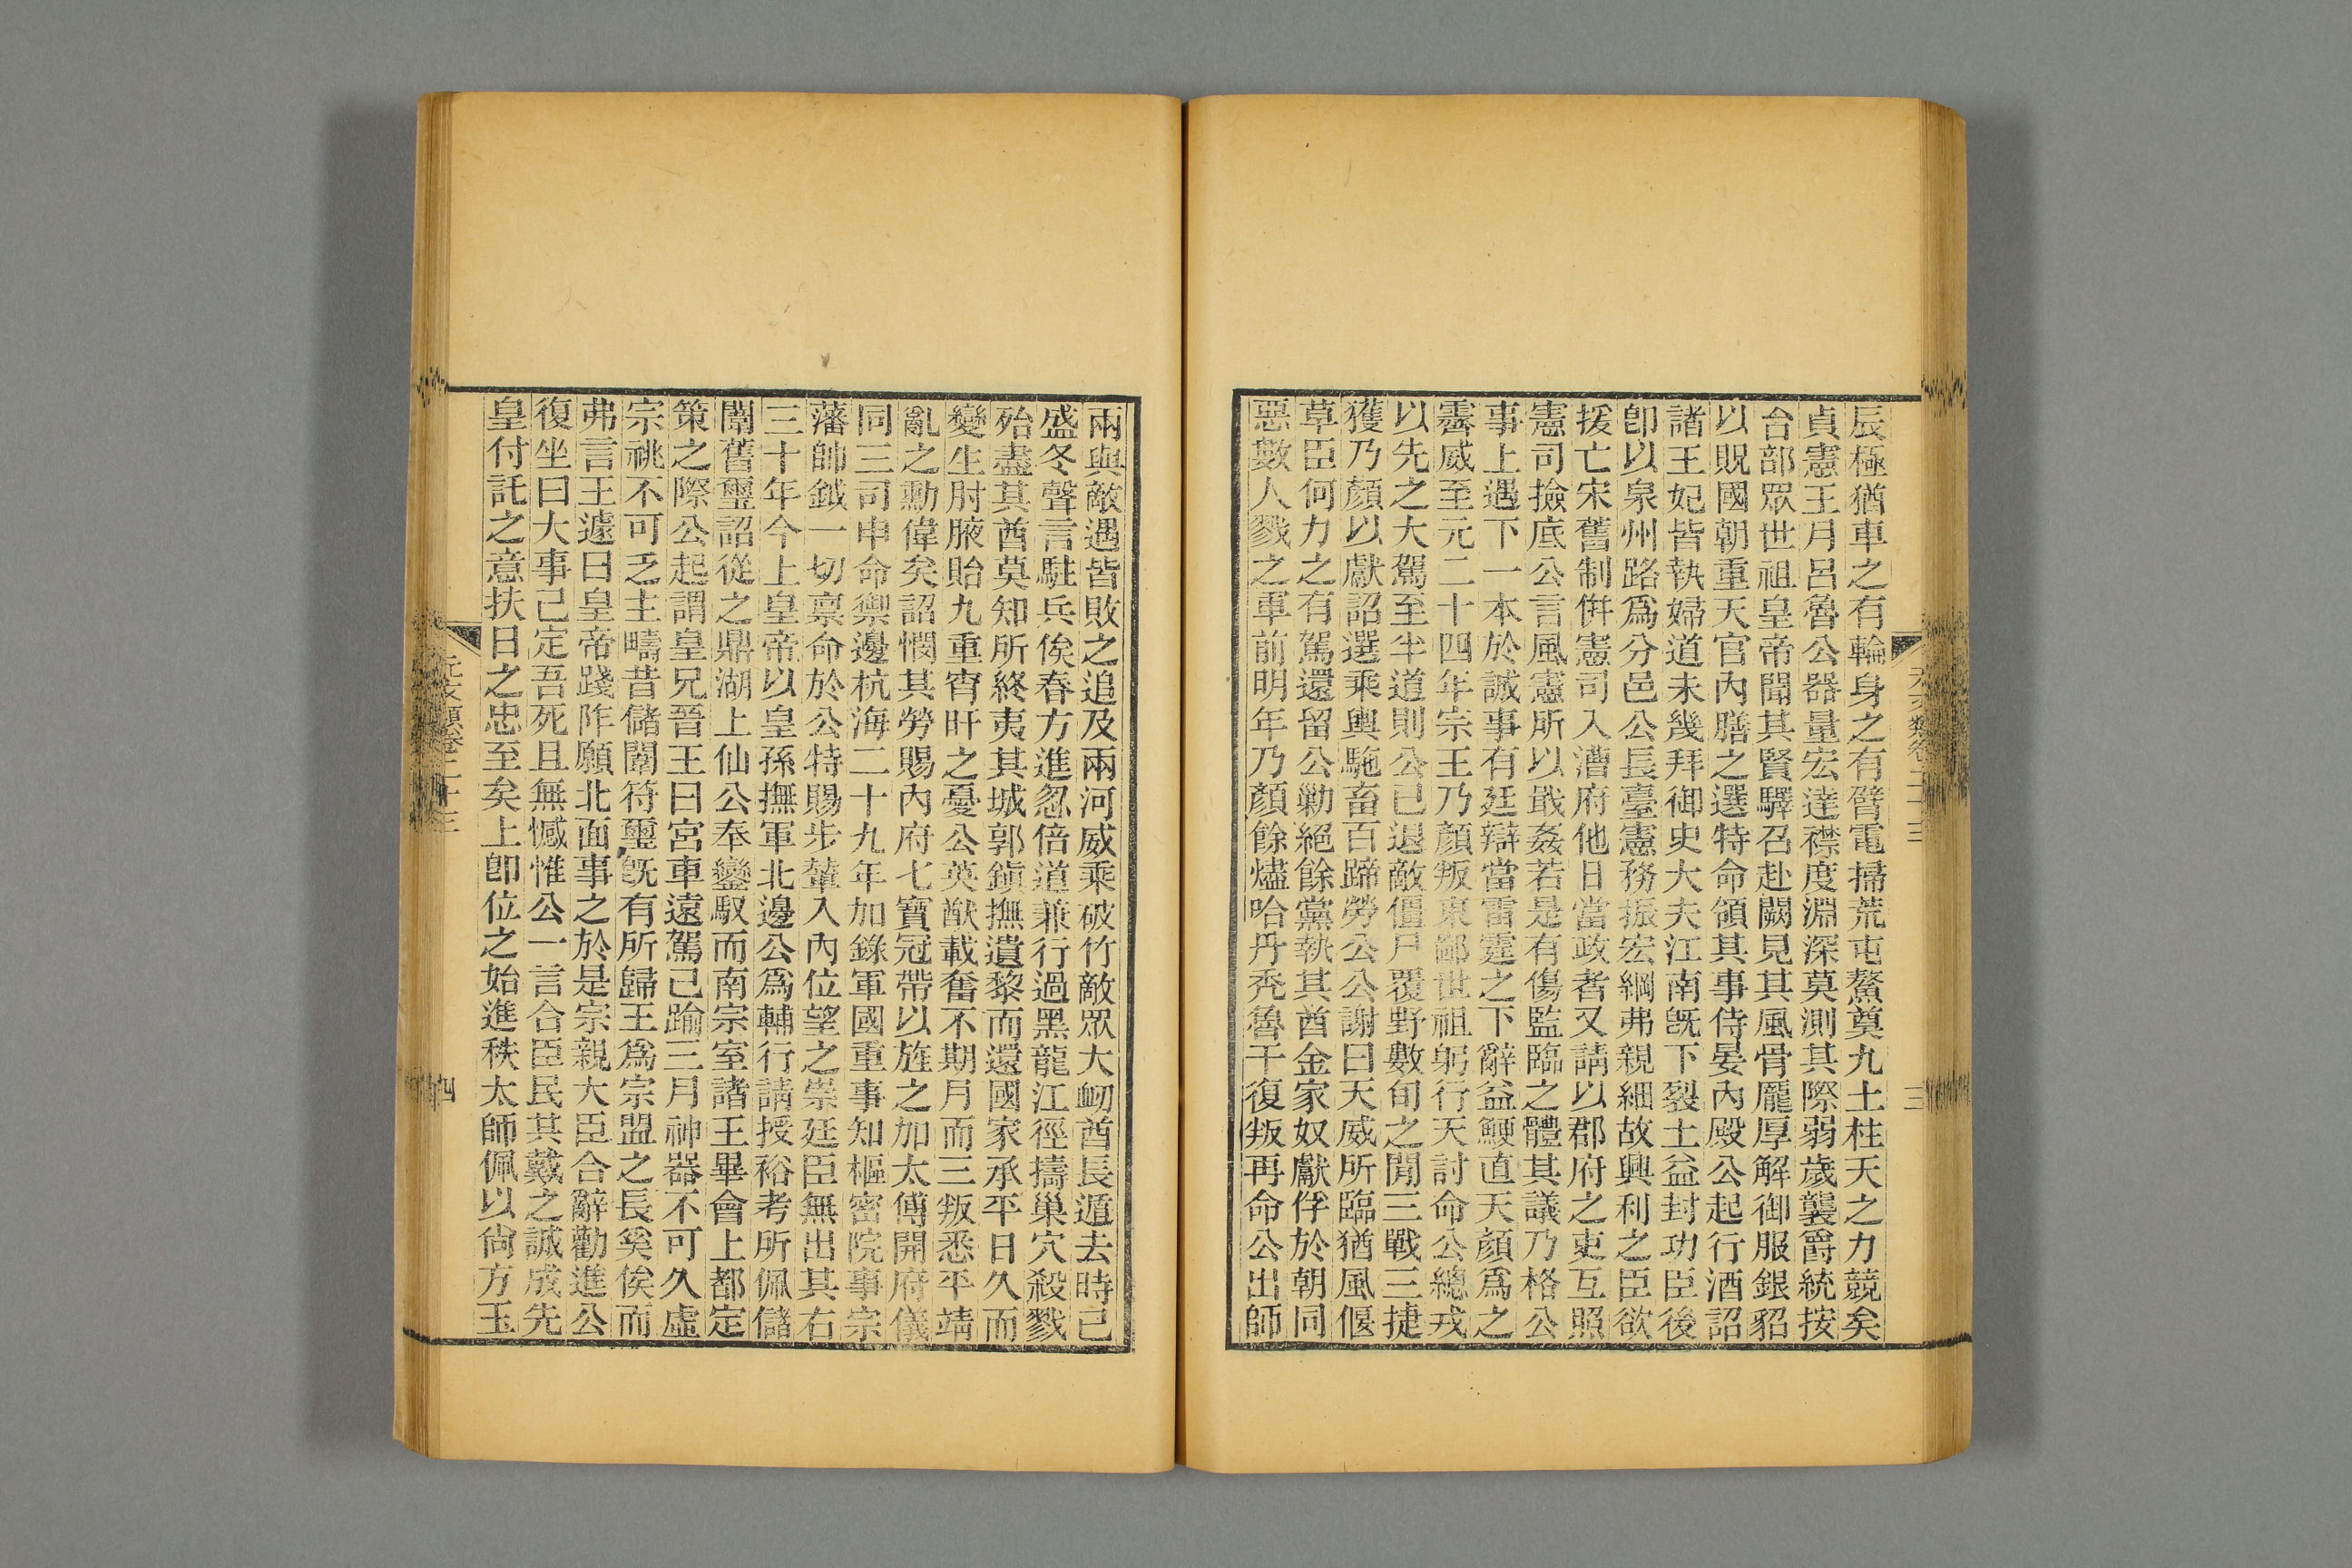 辰極猶車之有輪身之有臂電掃荒屯鰲奠九土柱天之力競矣
貞憲王月呂魯公器量宏達襟度淵深莫測其際弱歲襲爵統按
台部眾世祖皇帝聞其賢驛召赴闕見其風骨龎厚解御服銀貂
以貺國朝重天官內膳之選特命領其事侍晏內殿公起行酒詔
諸王妃皆執婦道未幾拜御史大夫江南旣下裂土益封功臣後
卽以泉州路爲分邑公長臺憲務振宏綱弗親細故興利之臣欲
援亡宋舊制倂憲司入漕府他日當政者又請以郡府之吏互照
憲司撿底公言風憲所以戢姦若是有傷監臨之體其議乃格公
事上遇下一本於誠事有廷辯當雷霆之下辭益鯁直天顏爲之
霽威至元二十四年宗王乃顏叛東鄙世祖躬行天討命公總戎
以先之大駕至半道則公已退敵僵尸覆野數旬之閒三戰三捷
獲乃顏以獻詔選乘輿駞畜百蹄勞公公謝曰天威所臨猶風偃
草臣何力之有駕還留公勦絕餘黨執其酋金家奴獻俘於朝同
惡數人戮之軍前明年乃顏餘燼哈丹禿魯干復叛再命公出師
元文類卷二十三
三
兩與敵遇皆敗之追及兩河威乘破竹敵眾大衂酋長遁去時已
盛冬聲言駐兵俟春方進忽倍道兼行過黑龍江徑擣巢穴殺戮
殆盡其酋莫知所終夷其城郭鎭撫遺黎而還國家承平日久而
變生肘腋貽九重宵旰之憂公英猷載奮不期月而三叛悉平靖
亂之勳偉矣詔憫其勞賜內府七寶冠帶以旌之加太傅開府儀
同三司申命禦邊杭海二十九年加錄軍國重事知樞密院事宗
藩帥鉞一切禀命於公特賜步輦入內位望之崇廷臣無出其右
三十年今上皇帝以皇孫撫軍北邊公爲輔行請授裕考所佩儲
闈舊璽詔從之鼎湖上仙公奉鑾馭而南宗室諸王畢會上都定
策之際公起謂皇兄晉王曰宮車遠駕已踰三月神器不可久虛
宗祧不可乏主疇昔儲闈符璽旣有所歸王爲宗盟之長奚俟而
弗言王遽曰皇帝踐阼願北面事之於是宗親大臣合辭勸進公
復坐曰大事已定吾死且無憾惟公一言合臣民其戴之誠成先
皇付託之意扶日之忠至矣上卽位之始進秩太師佩以尙方玉
元文類卷二十三
四